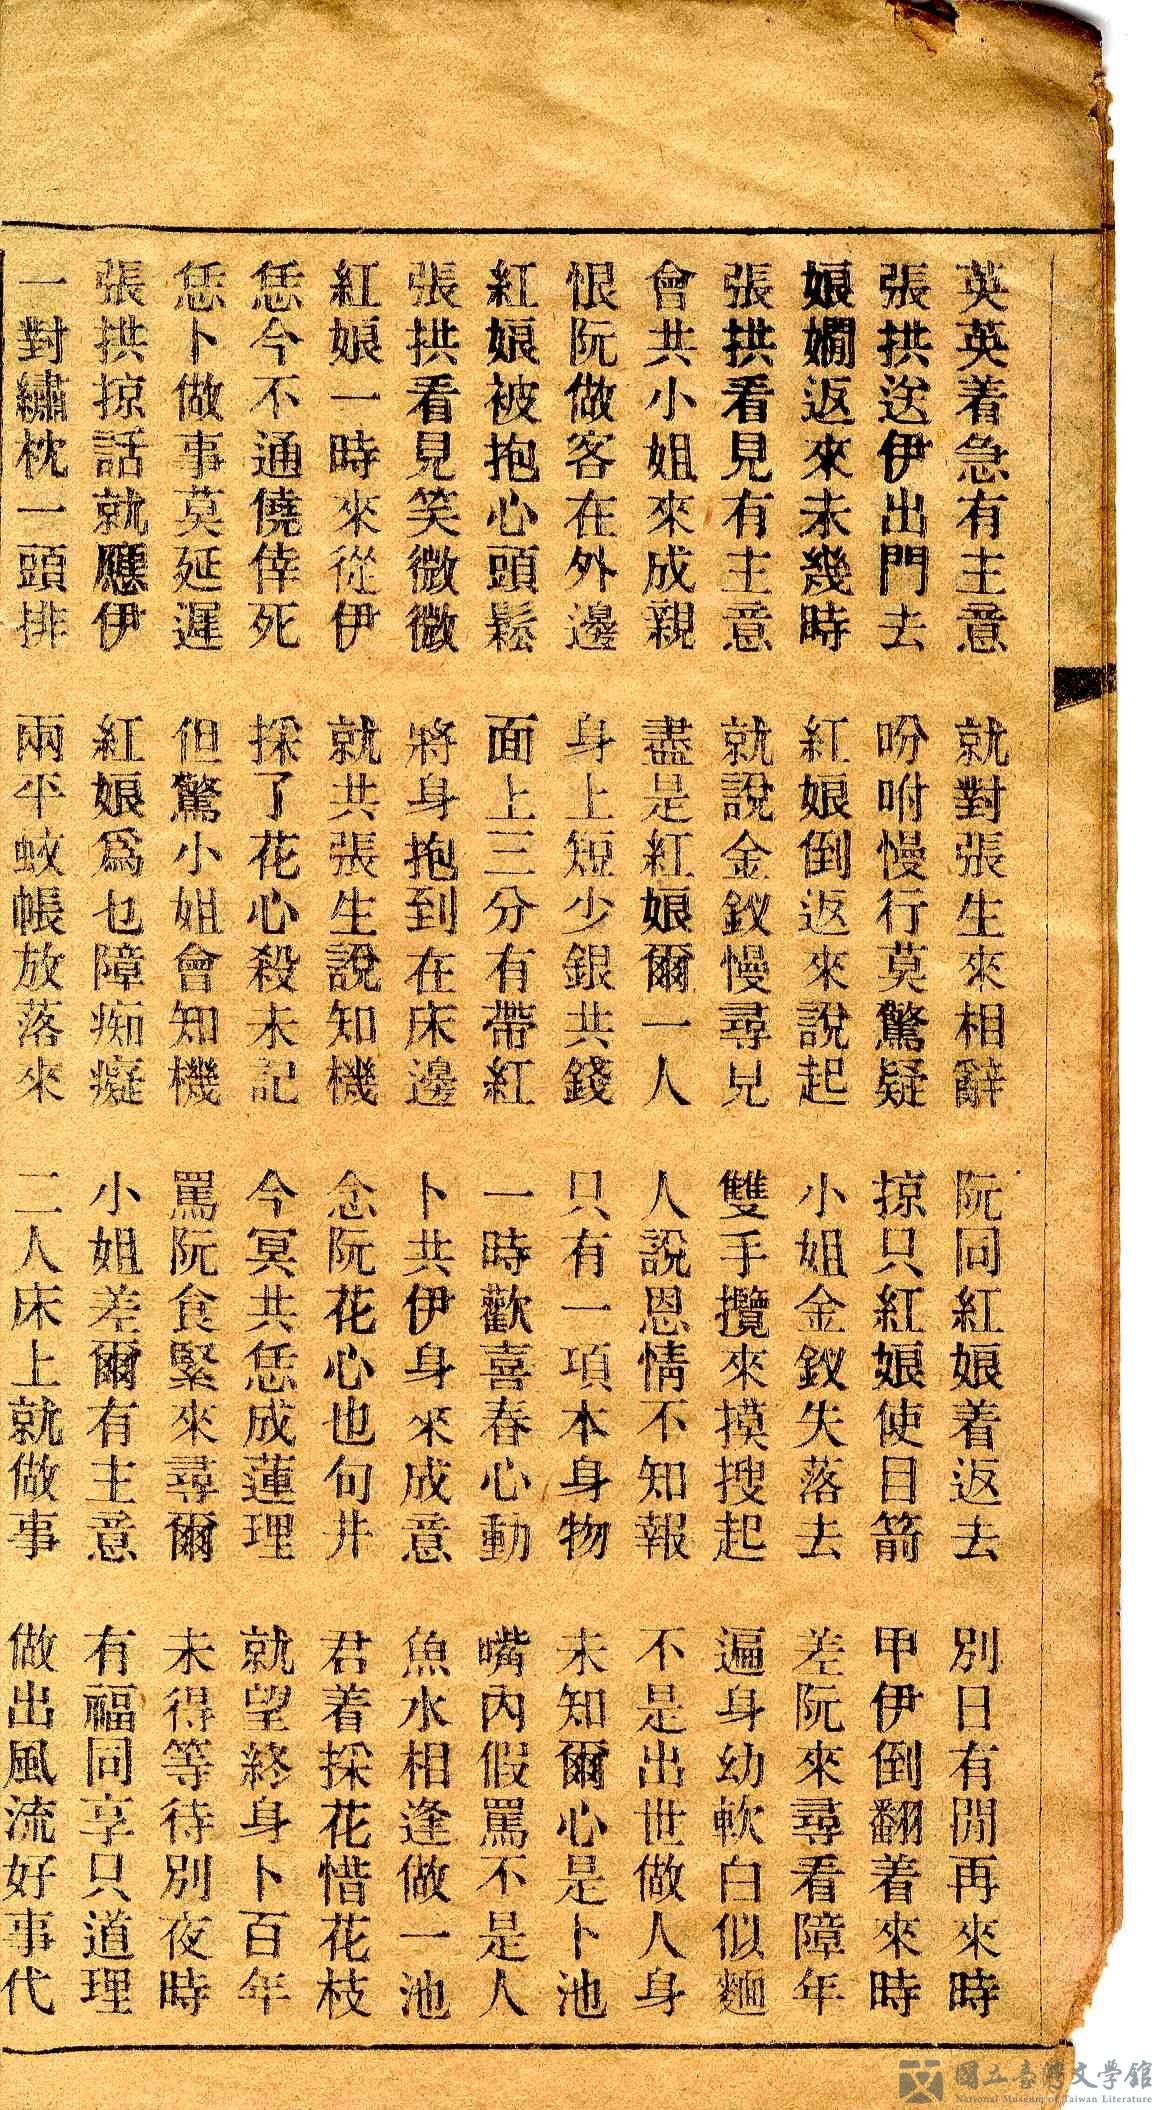 英英着急有主意　就對張生來相辭　阮同紅娘着返去　別日有閒再來時
張拱送伊出門去　吩咐慢行莫驚疑　掠只紅娘使目箭　甲伊倒翻着來時
娘嫺返來未幾時　紅娘倒返來說起　小姐金釵失落去　差阮來尋看障年
張拱看見有主意　就說金釵慢尋見　雙手攬來摸搜起　遍身幼軟白似麵
會共小姐來成親　盡是紅娘爾一人　人說恩情不知報　不是出世做人身
恨阮做客在外邊　身上短少銀共錢　只有一項本身物　未知爾心是卜池
紅娘被抱心頭鬆　面上三分有帶紅　一時歡喜春心動　嘴內假罵不是人
張拱看見笑微微　將身抱到在床邊　卜共伊身來成意　魚水相逢做一池
紅娘一時來從伊　就共張生說知機　念阮花心也句井　君着採花惜花枝
恁今不通僥倖死　採了花心殺未記　今冥共恁成蓮理　就望終身卜百年
恁卜做事莫延遲　但驚小姐會知機　罵阮食緊來尋爾　未得等待別夜時
張拱掠話就應伊　紅娘爲乜障痴癡　小姐差爾有主意　有福同享只道理
一對繡枕一頭排　兩平蚊帳放落來　二人床上就做事　做出風流好事代
國立臺灣文學館
National Museum of Taiwan Literature